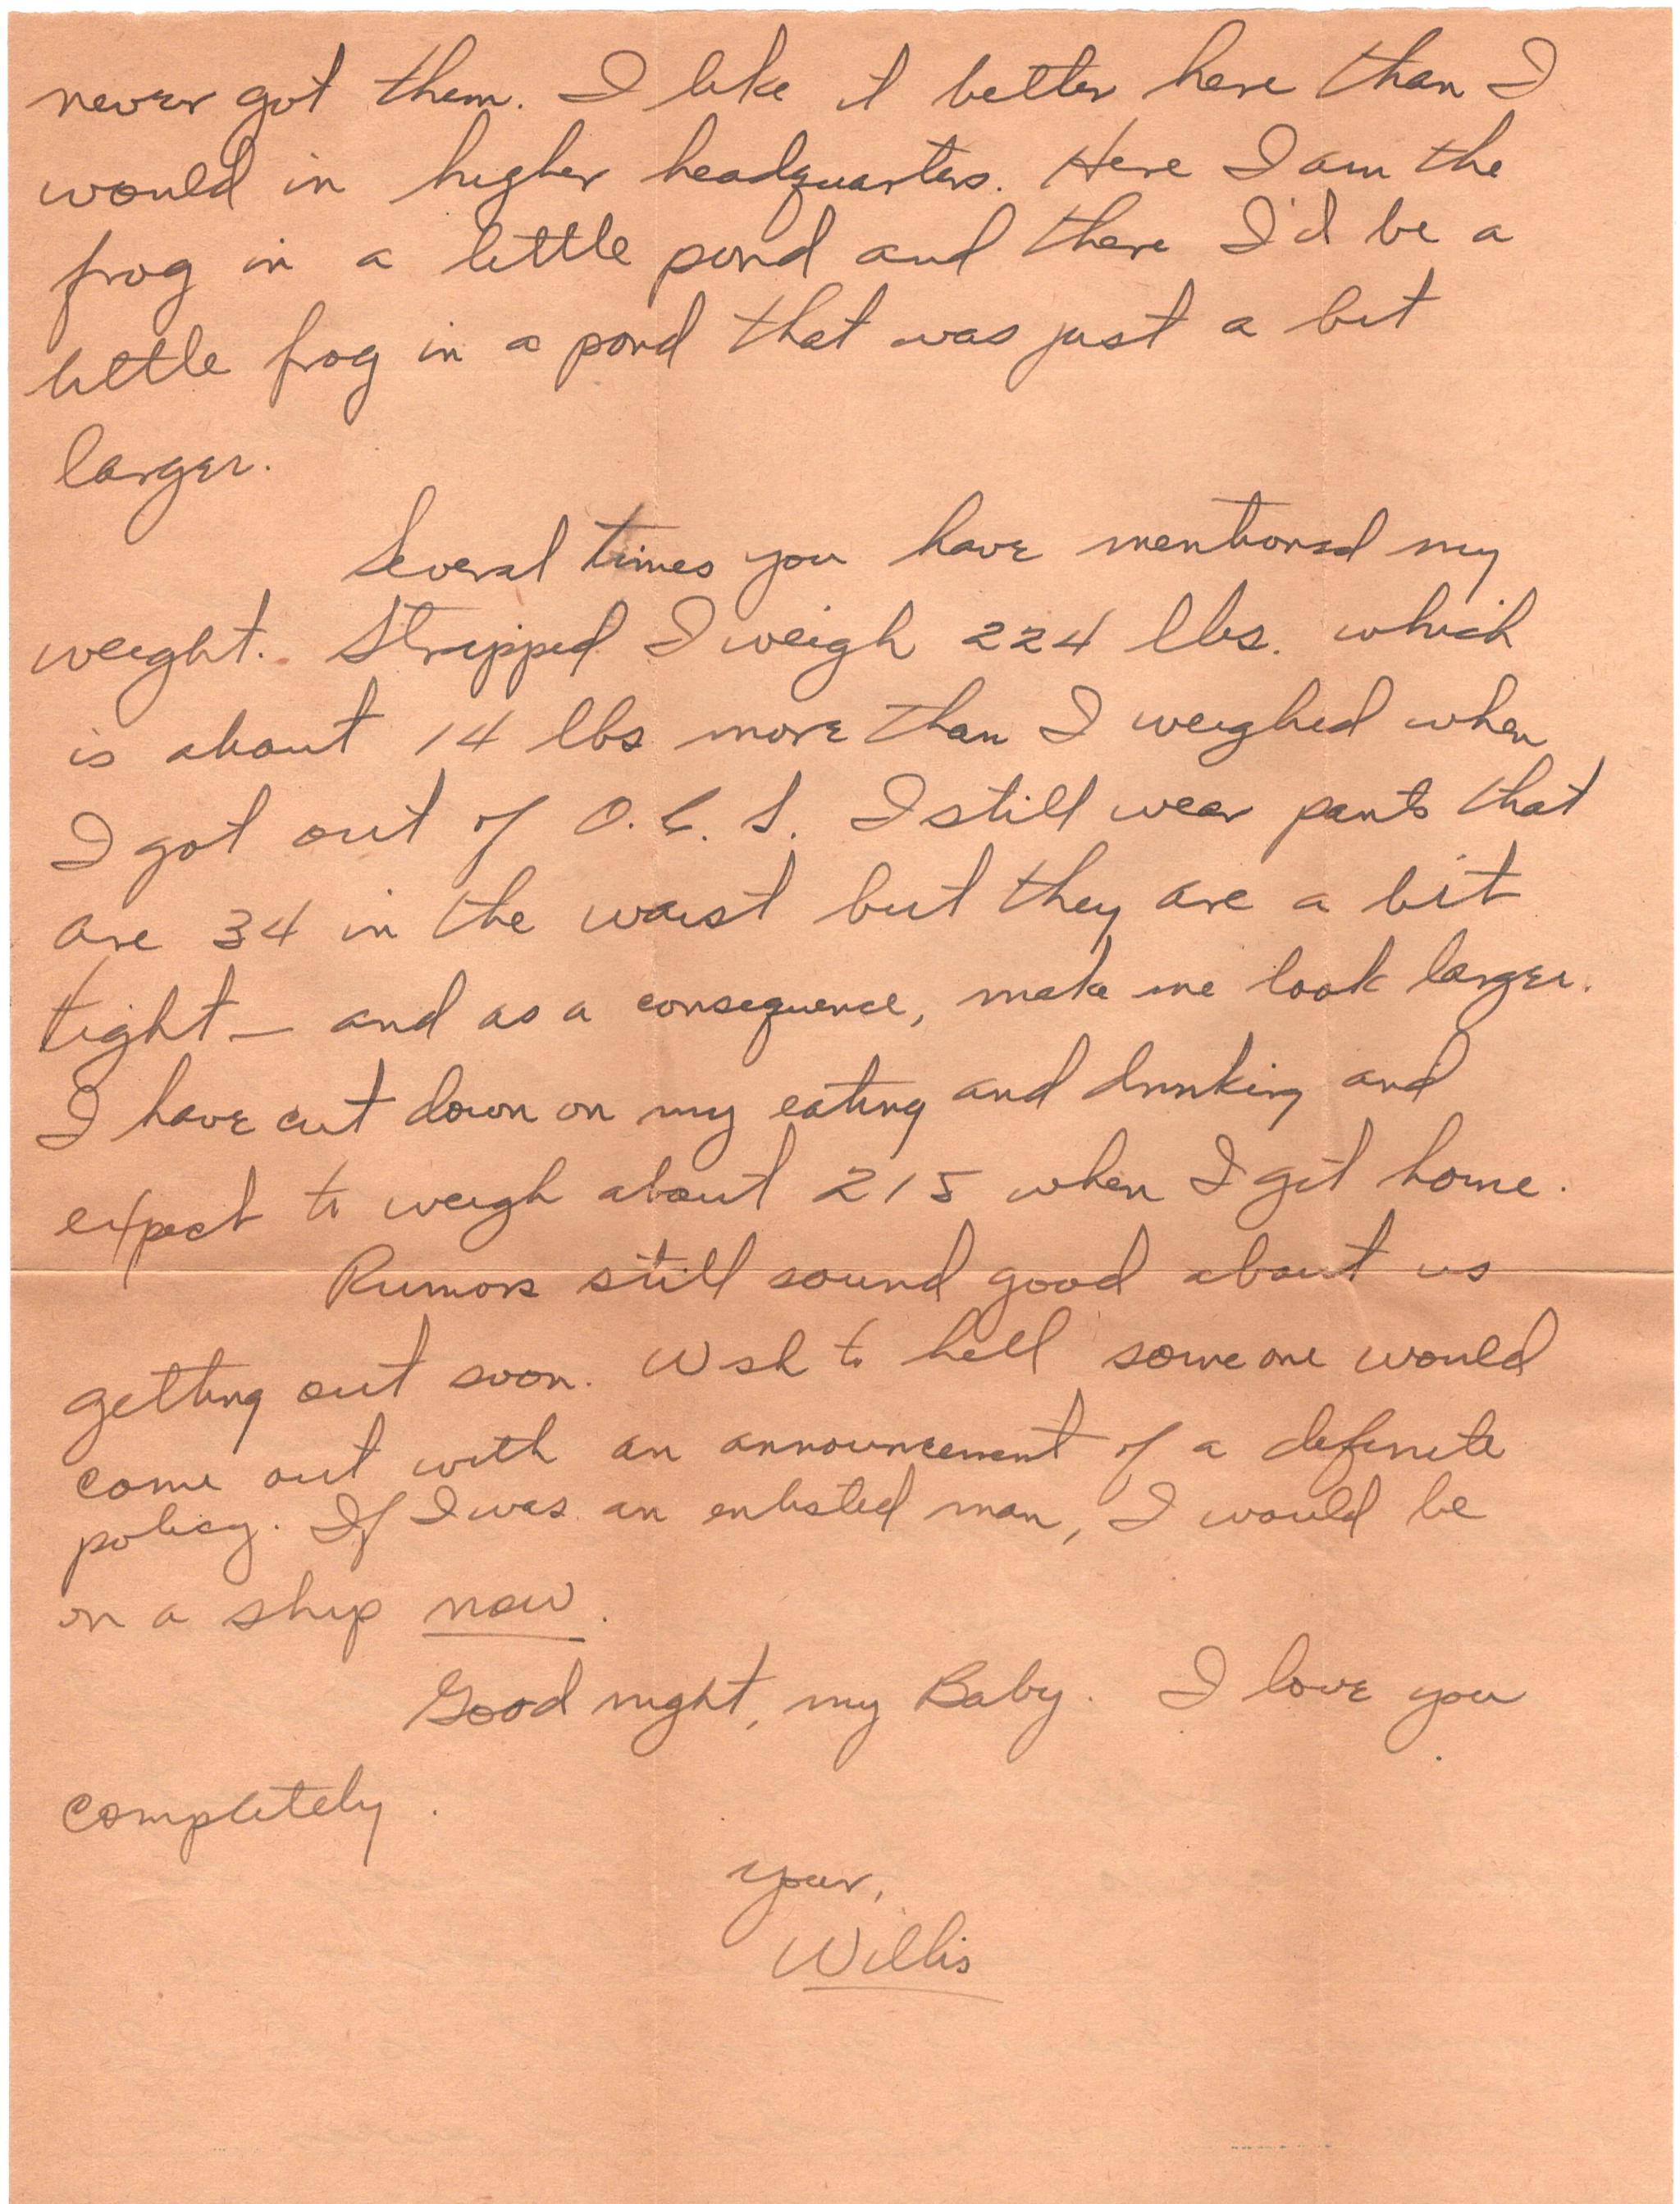 never got them. I like it better here than I
would in higher headquarters. Here I am the
frog in a little pond and there I'd be a
little frog in a pond that was just a bit
larger.
Several times you have mentioned my
weight. Stripped I weigh 224 lbs. which
is about 14 lbs more than I weighed when
I got out of O.C.S. I still wear pants that
are 34 in the waist but they are a bit
tight — and as a consequence, make me look larger.
I have cut down on my eating and drinking and
expect to weigh about 215 when I get home.
Rumors still sound good about us
getting out soon. Wish to hell someone would
come out with an announcement of a definite
policy. If I was an enlisted man, I would be
on a ship now.
Good night, my Baby. I love you
completely.
Your,
Willis